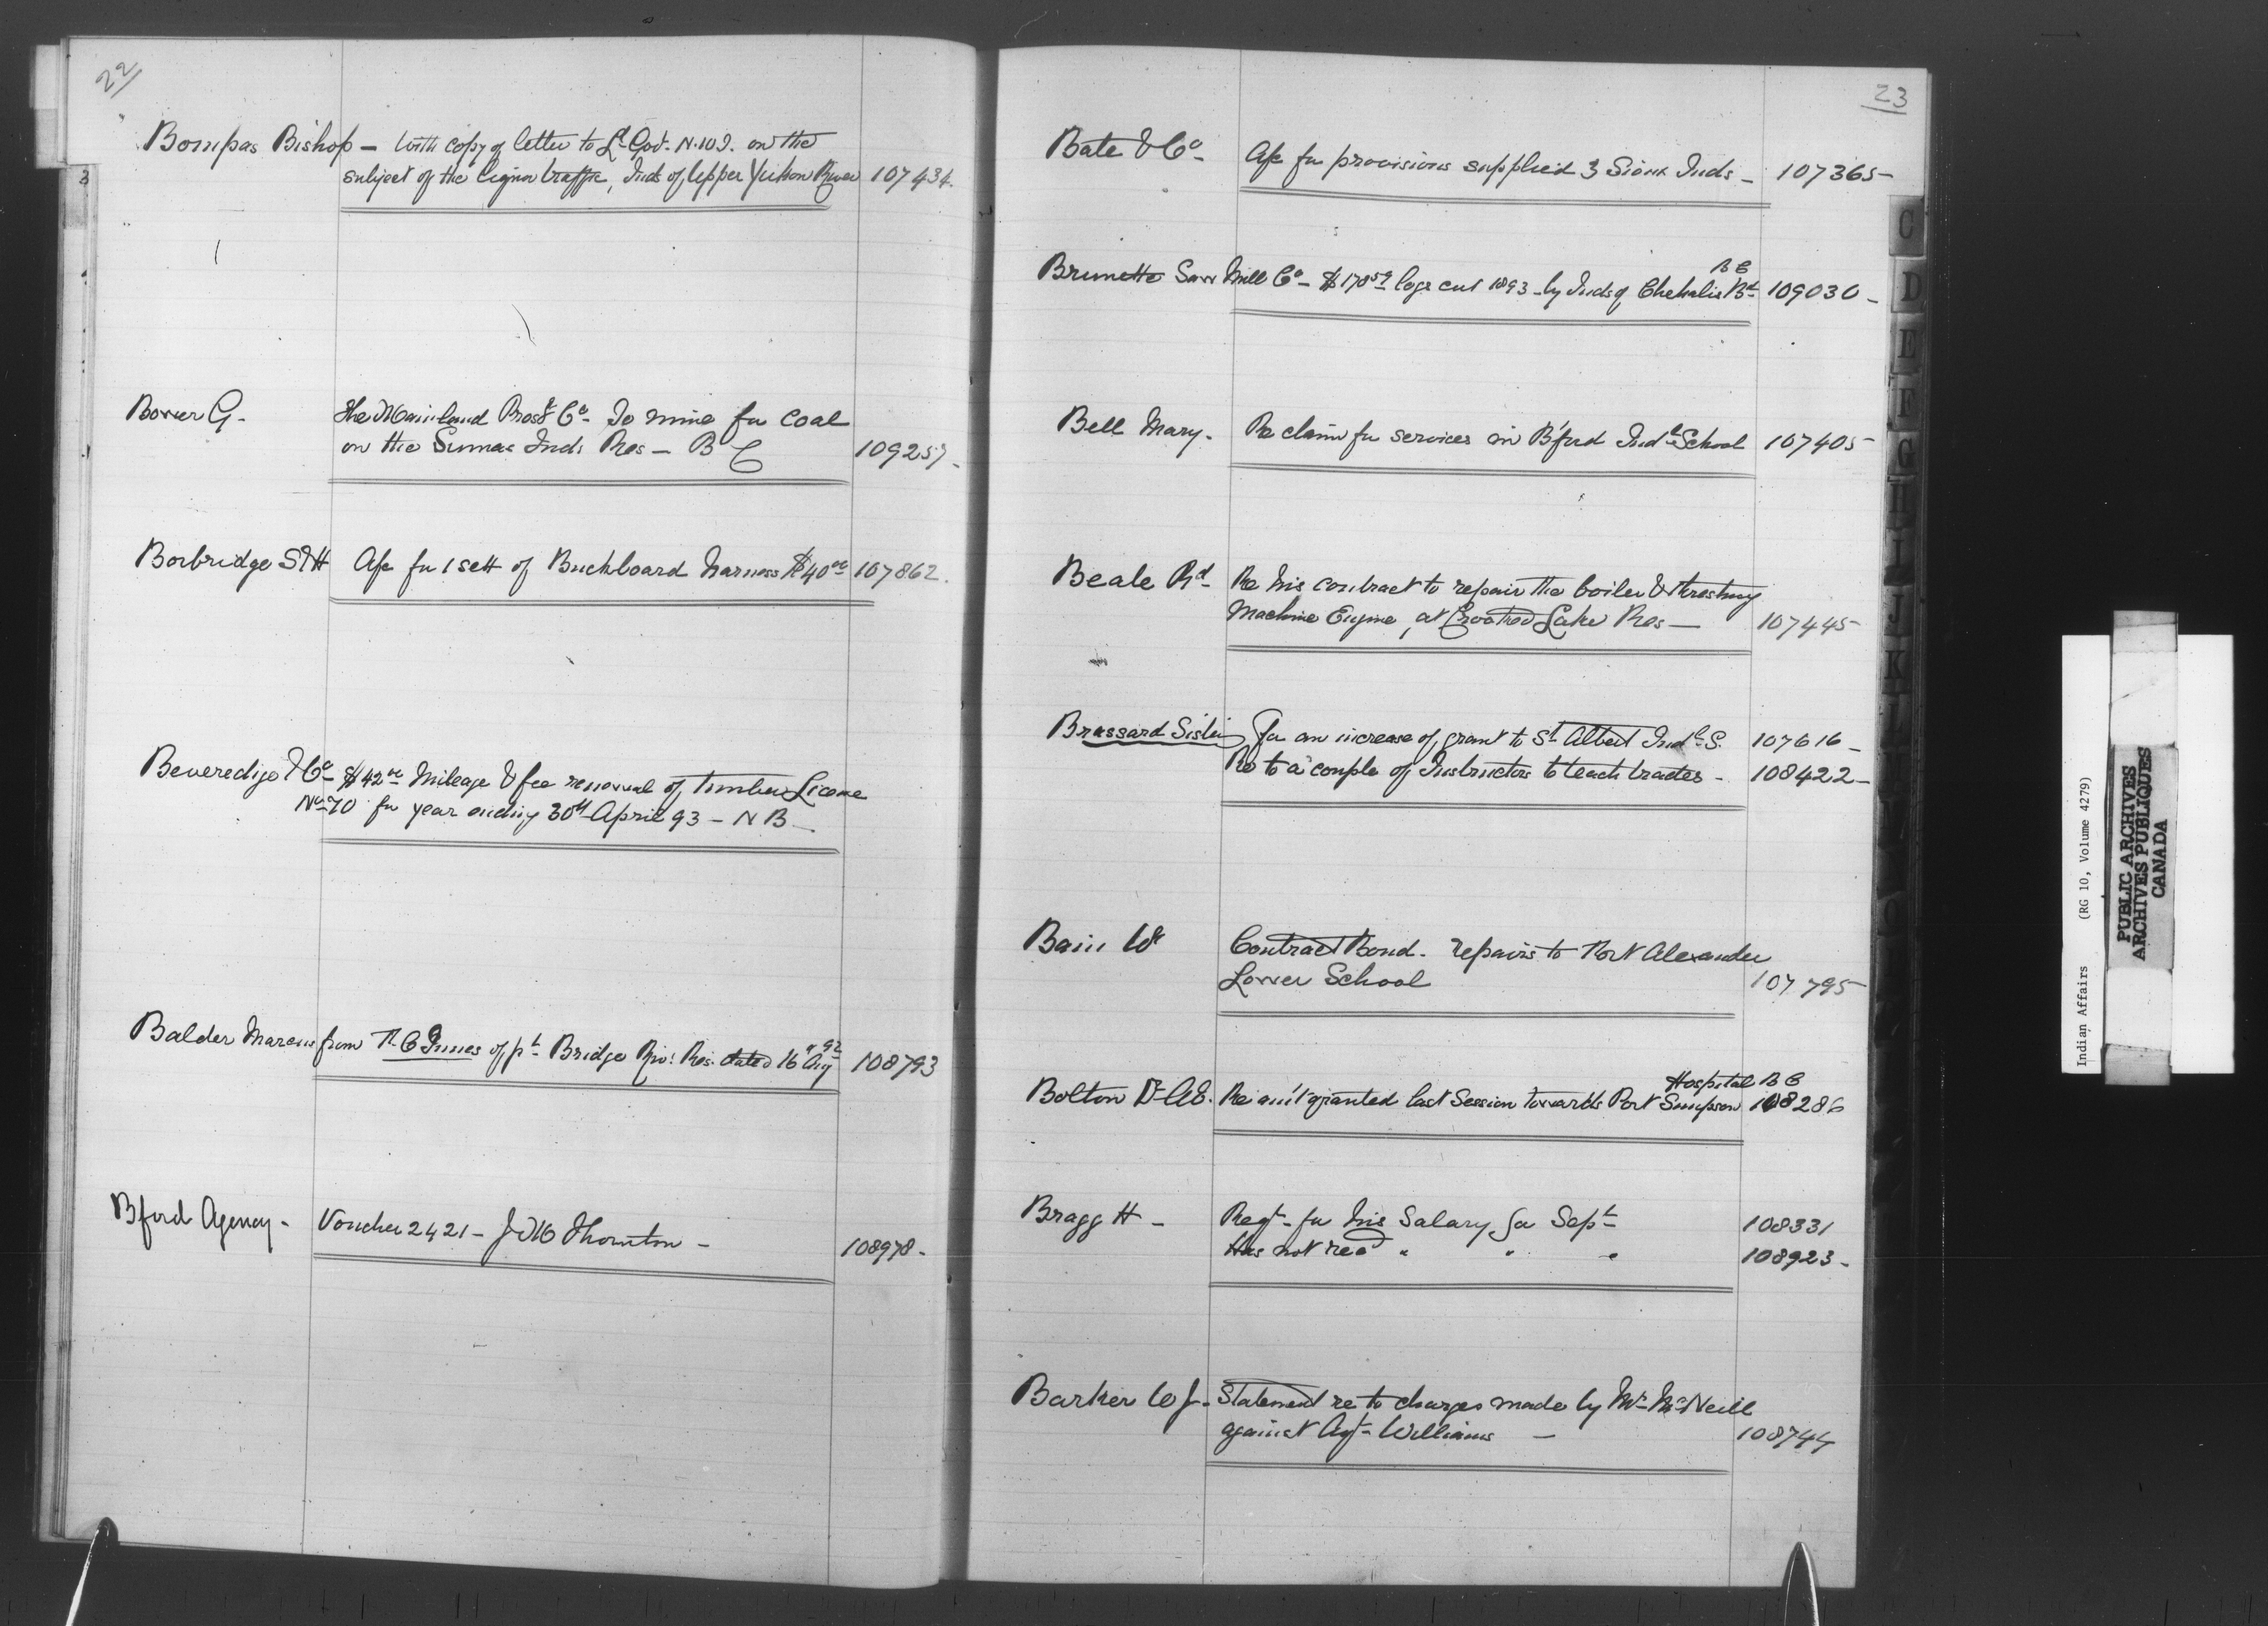 22
Bompas Bishop — with copy of letter to Lt Gov. N.W.T. on the
subject of the liquor traffic, Inds of, Upper Yukon River 107434.
Bower G. The Mainland Prost Co. To mine for Coal
on the Sumas Inds Res — B C 109257.
Borbridge S & H A/c for 1 sett of Buckboard harness $40 00 107862.
Beveredige & Co $42 00 Mileage & fee renewal of, timber License
No 70 for year ending 30th April 93 — N B —
Balder Marcus from R. C. Innes of pt Bridge Riv. Res. dated 16 Aug 92 108793
Bford Agency - Voucher 2421 — J M Thornton — 108978 -
23
Bate & Co - A/c for provisions supplied 3 Sioux Inds - 107365 -
B C
Brunette Saw Mill Co - $178 59 logs cut 1893 - by Inds of, Chehalis Bd 109030 -
Bell Mary. Re claim for services in B'ford Indl School 107405 -
Beale Rd - Re his contract to repair the boiler & threshing
Machine Engine, at Crooked Lake Res — 107445 -
Brassard Sister for an increase of, grant to St Albert Indl S. 107616 -
Re to a couple of Instructors to teach trades - 108422 -
Bain W Contract Bond. repairs to Fort Alexander
Lower School 107795
Hospital B C
Bolton Dr A E. Re am't granted last Session towards Port Simpson 108286
Bragg H - Regt - for his Salary for Sept 108331
Has not recd " " " 108923 -
Barker W J - Statement re to charges made by Mr McNeill
against Agt Williams — 108744
C
D
E
F
G
H
I
J
K
Indian Affairs (RG 10, Volume 4279)
PUBLIC ARCHIVES
ARCHIVES PUBLIQUES
CANADA